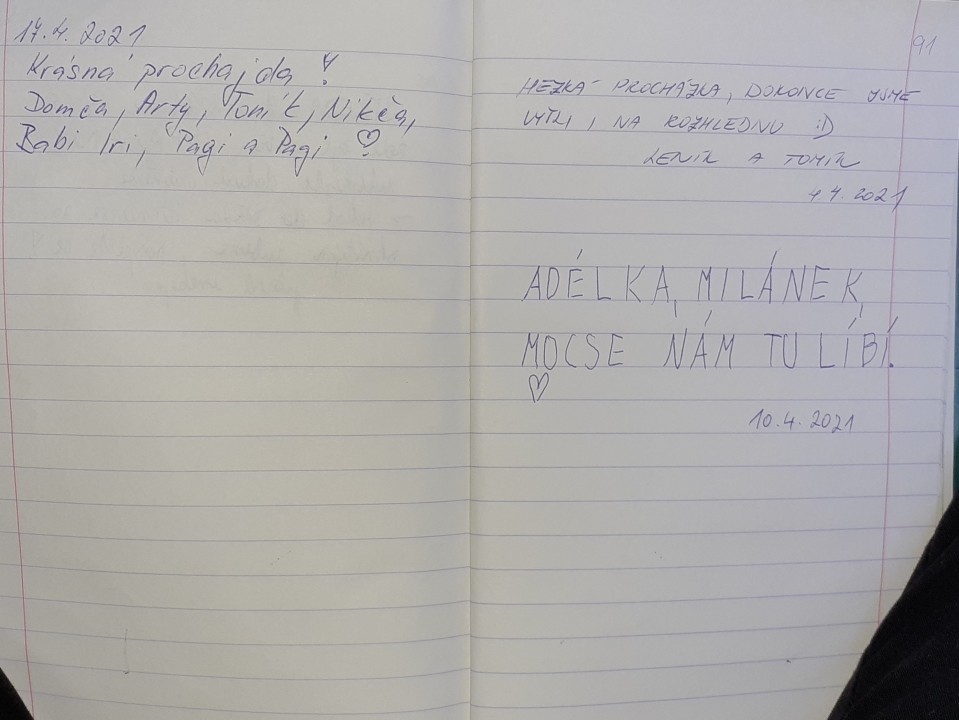 17.4.2021
Krásná prochajda!
Domča, Arty, Toník, Nikča,
Babi Iri, Pagi a Pagi ♡
91
HEZKÁ PROCHÁZKA, DOKONCE JSME
VYŠLI, NA ROZHLEDNU :D
LENÍK A TOMÍK
4.4.2021
ADÉLKA, MILÁNEK,
MOCSE NÁM TU LÍBÍ.
♡
10.4.2021